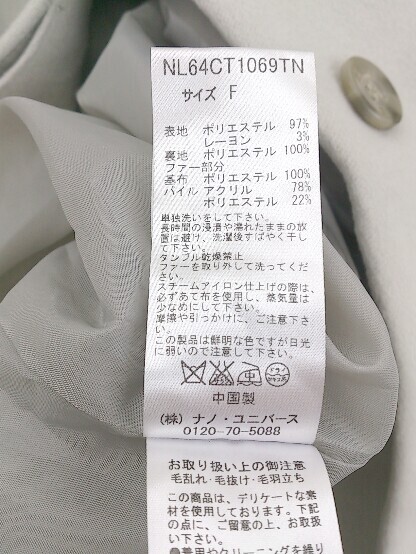 NL64CT1069TN
サイズ F
表地 ポリエステル 97%
レーヨン 3%
裏地 ポリエステル 100%
ファー部分
基布 ポリエステル 100%
パイル アクリル 78%
ポリエステル 22%
単独洗いをして下さい。
長時間の浸漬や濡れたままの放
置は避け、洗濯後すばやく干し
て下さい。
タンブル乾燥禁止
ファーを取り外して洗ってくださ
い。
スチームアイロン仕上げの際は、
必ずあて布を使用し、蒸気量は
少なめにして下さい。
摩擦や引っかけに、ご注意下さ
い。
この製品は鮮明な色ですが日光
に弱いので注意して下さい。
中国製
(株) ナノ・ユニバース
0120-70-5088
お取り扱い上の御注意
毛乱れ・毛抜け・毛羽立ち
この商品は、デリケートな素
材を使用しております。下記
の点に、ご留意の上、お取扱
い下さい。
●着用やクリーニングを繰り